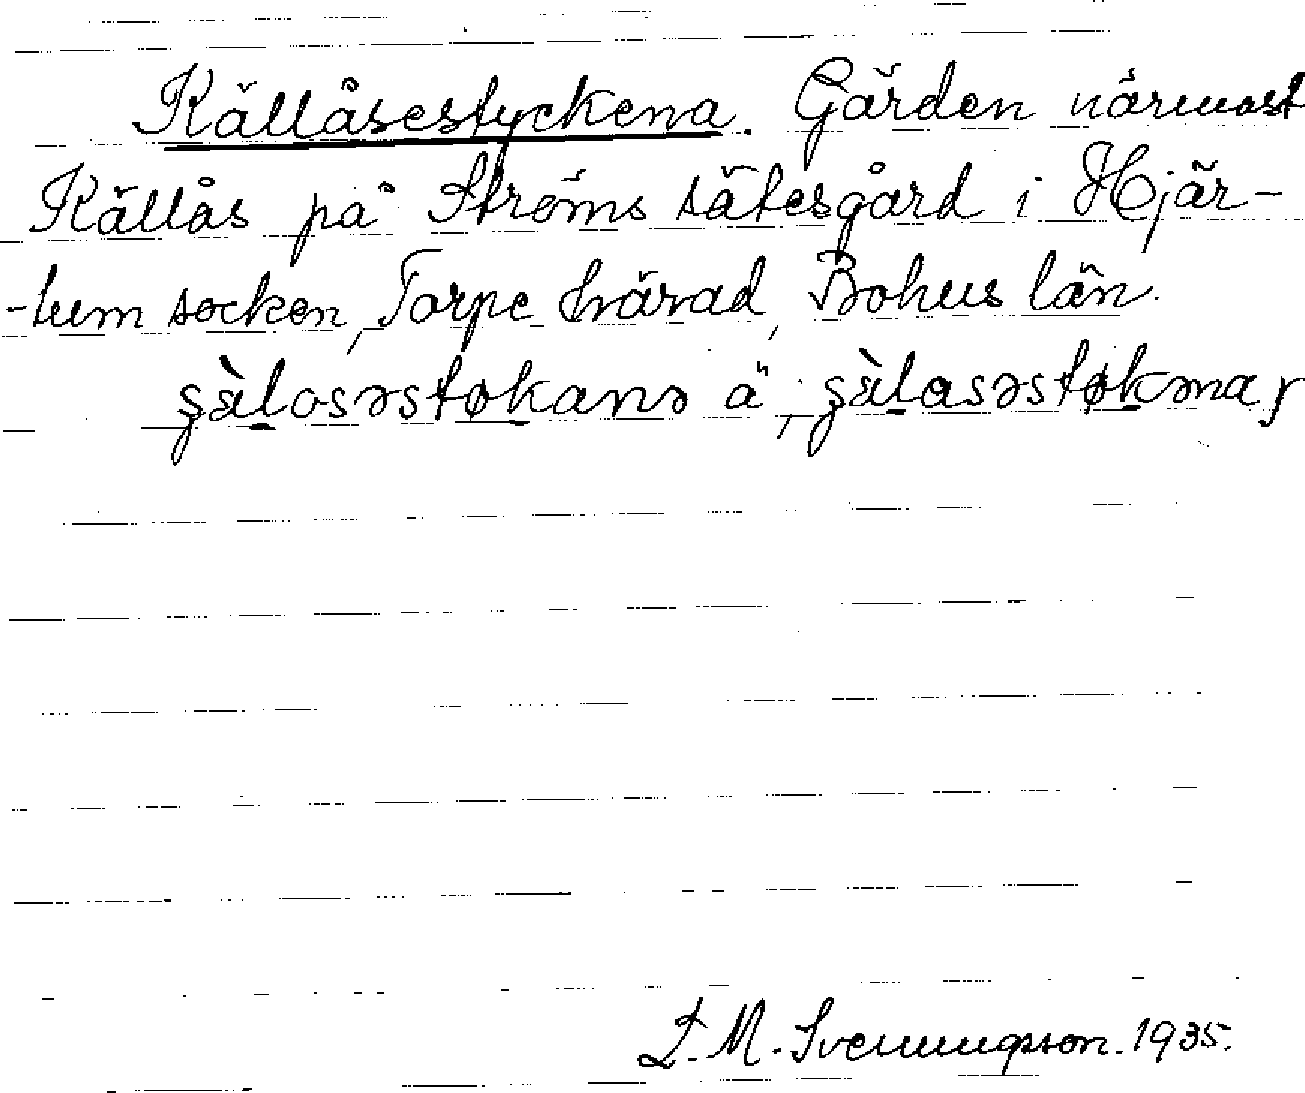 Källåsestyckena. Gärden närmast
Källås på Ströms sätesgård i Hjär-
-tum socken, Torpe härad, Bohus län.
s̨àlosəstøkanə ä, s̨àlasəstøkəna,
L. M. Svenungsson. 1935.